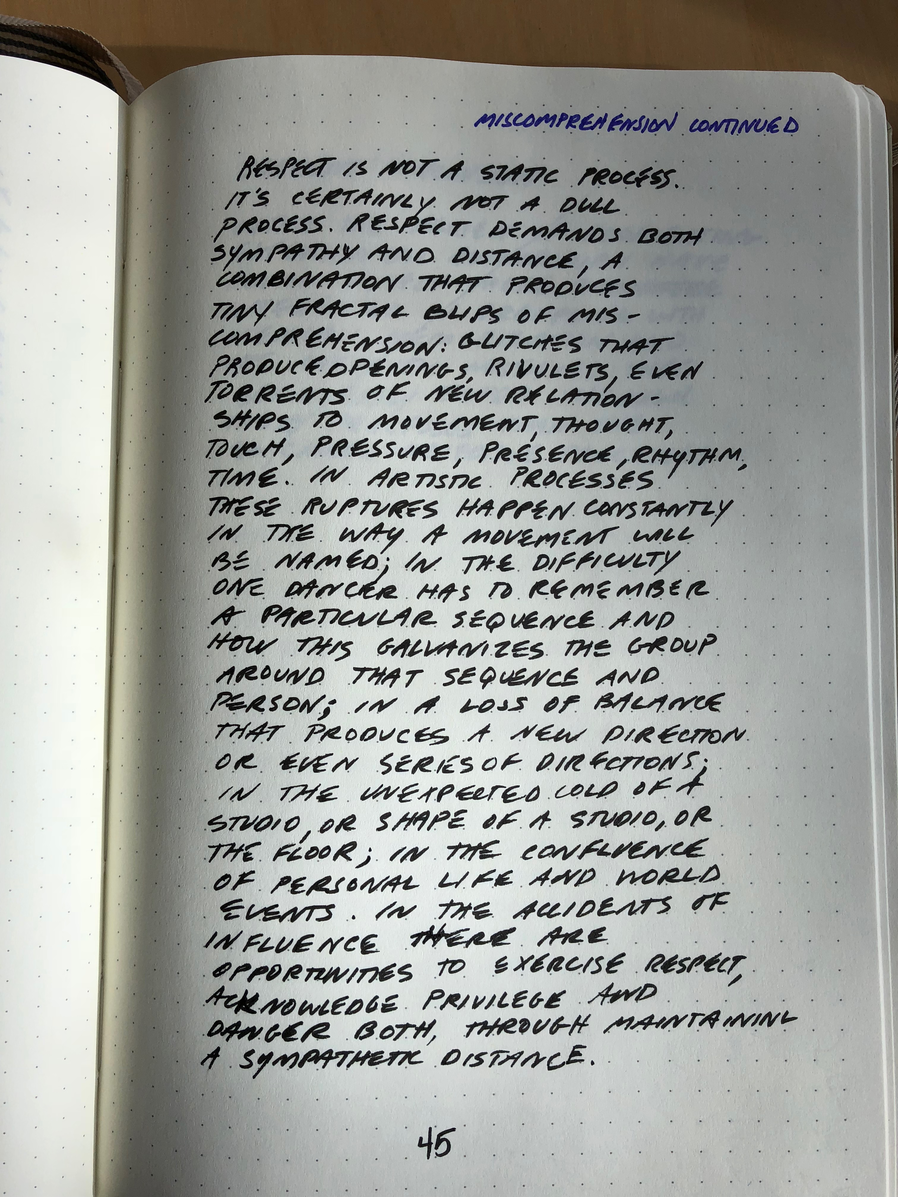 MISCOMPREHENSION CONTINUED
RESPECT IS NOT A STATIC PROCESS.
IT'S CERTAINLY NOT A DULL
PROCESS. RESPECT DEMANDS BOTH
SYMPATHY AND DISTANCE, A
COMBINATION THAT PRODUCES
TINY FRACTAL BLIPS OF MIS-
COMPREHENSION: GLITCHES THAT
PRODUCE OPENINGS, RIVULETS, EVEN
TORRENTS OF NEW RELATION-
SHIPS TO MOVEMENT, THOUGHT,
TOUCH, PRESSURE, PRESENCE, RHYTHM,
TIME. IN ARTISTIC PROCESSES
THESE RUPTURES HAPPEN CONSTANTLY
IN THE WAY A MOVEMENT WILL
BE NAMED; IN THE DIFFICULTY
ONE DANCER HAS TO REMEMBER
A PARTICULAR SEQUENCE AND
HOW THIS GALVANIZES THE GROUP
AROUND THAT SEQUENCE AND
PERSON; IN A LOSS OF BALANCE
THAT PRODUCES A NEW DIRECTION
OR EVEN SERIES OF DIRECTIONS;
IN THE UNEXPECTED COLD OF A
STUDIO, OR SHAPE OF A STUDIO, OR
THE FLOOR; IN THE CONFLUENCE
OF PERSONAL LIFE AND WORLD
EVENTS. IN THE ACCIDENTS OF
INFLUENCE THERE ARE
OPPORTUNITIES TO EXERCISE RESPECT,
ACKNOWLEDGE PRIVILEGE AND
DANGER BOTH, THROUGH MAINTAINING
A SYMPATHETIC DISTANCE.
45